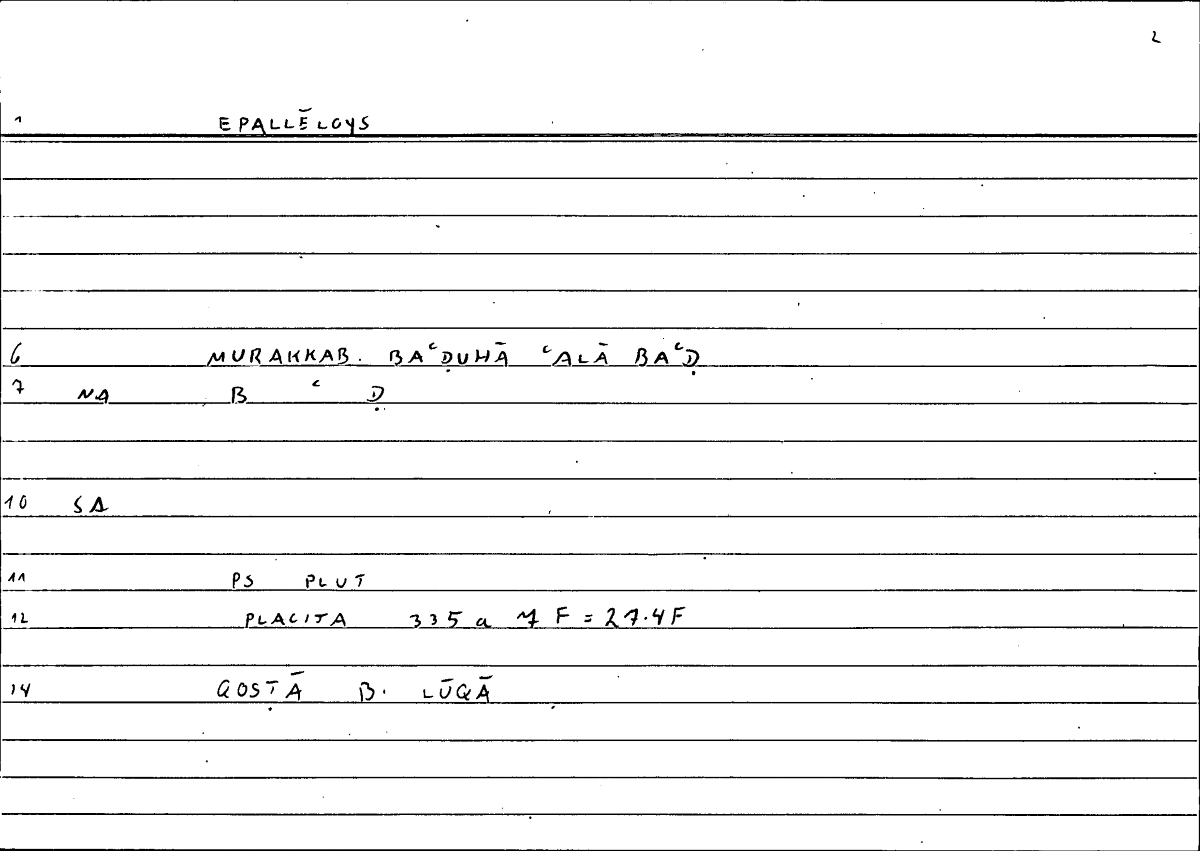 2
1 EPALLĒLOYS
6 MURAKKAB. BAʿḌUHĀ ʿALĀ BAʿḌ
7 NA B ʿ Ḍ
10 SA
11 PS PLUT
12 PLACITA 335 a 7 F = 27.4 F
14 QOSṬĀ B. LŪQĀ